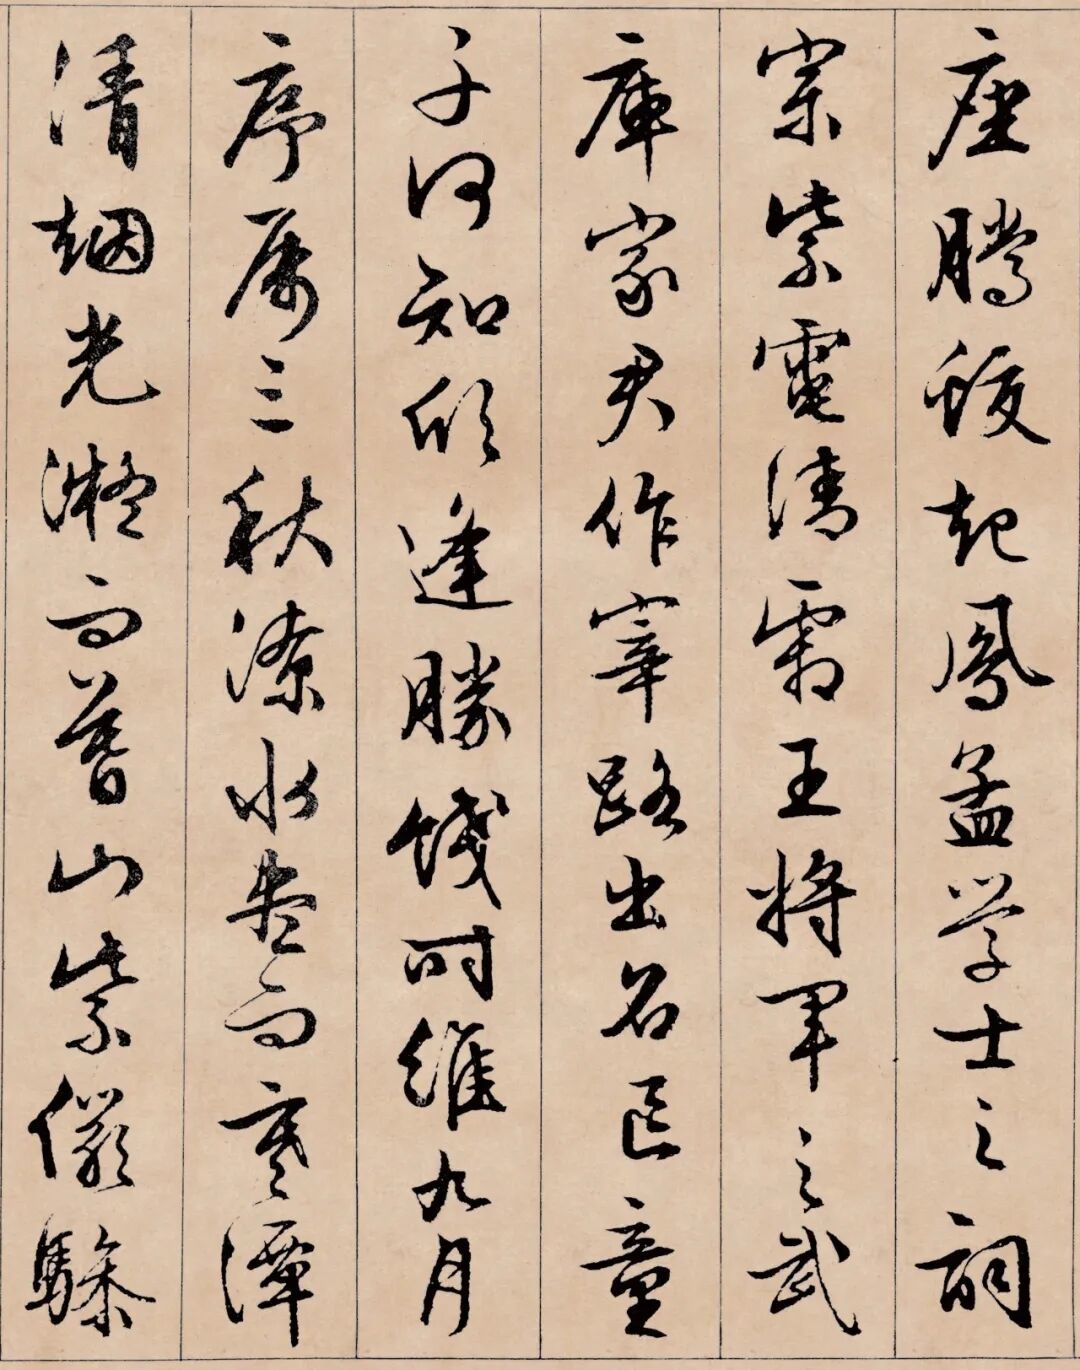 座腾蛟起鳳孟学士之詞
宗紫電清霜王将軍之武
庫家君作宰路出名区童
子何知躬逢勝餞时維九月
序属三秋潦水尽而寒潭
清烟光凝而暮山紫儼驂